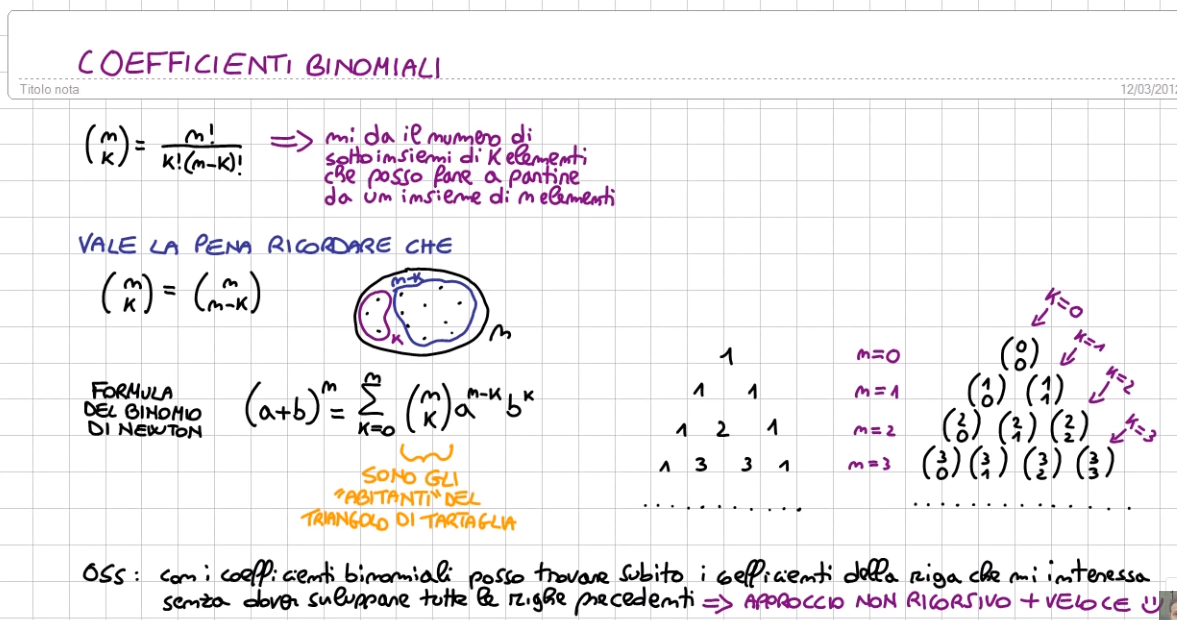 COEFFICIENTI BINOMIALI
Titolo nota
12/03/201
(n k) = n! / k!(n-k)! => mi da il numero di
sottoinsiemi di K elementi
che posso fare a partire
da un insieme di n elementi
VALE LA PENA RICORDARE CHE
(n k) = (n n-k)
n-k
K
n
FORMULA
DEL BINOMIO
DI NEWTON
(a+b)^n = Σ_{K=0}^{n} (n K) a^{n-K} b^K
SONO GLI
"ABITANTI" DEL
TRIANGOLO DI TARTAGLIA
1
1 1
1 2 1
1 3 3 1
. . . . . . . . . . .
n=0
n=1
n=2
n=3
K=0
K=1
K=2
K=3
(0 0)
(1 0) (1 1)
(2 0) (2 1) (2 2)
(3 0) (3 1) (3 2) (3 3)
. . . . . . . . . . . . . . .
OSS: con i coefficienti binomiali posso trovare subito i coefficienti della riga che mi interessa
senza dover sviluppare tutte le righe precedenti => APPROCCIO NON RICORSIVO + VELOCE